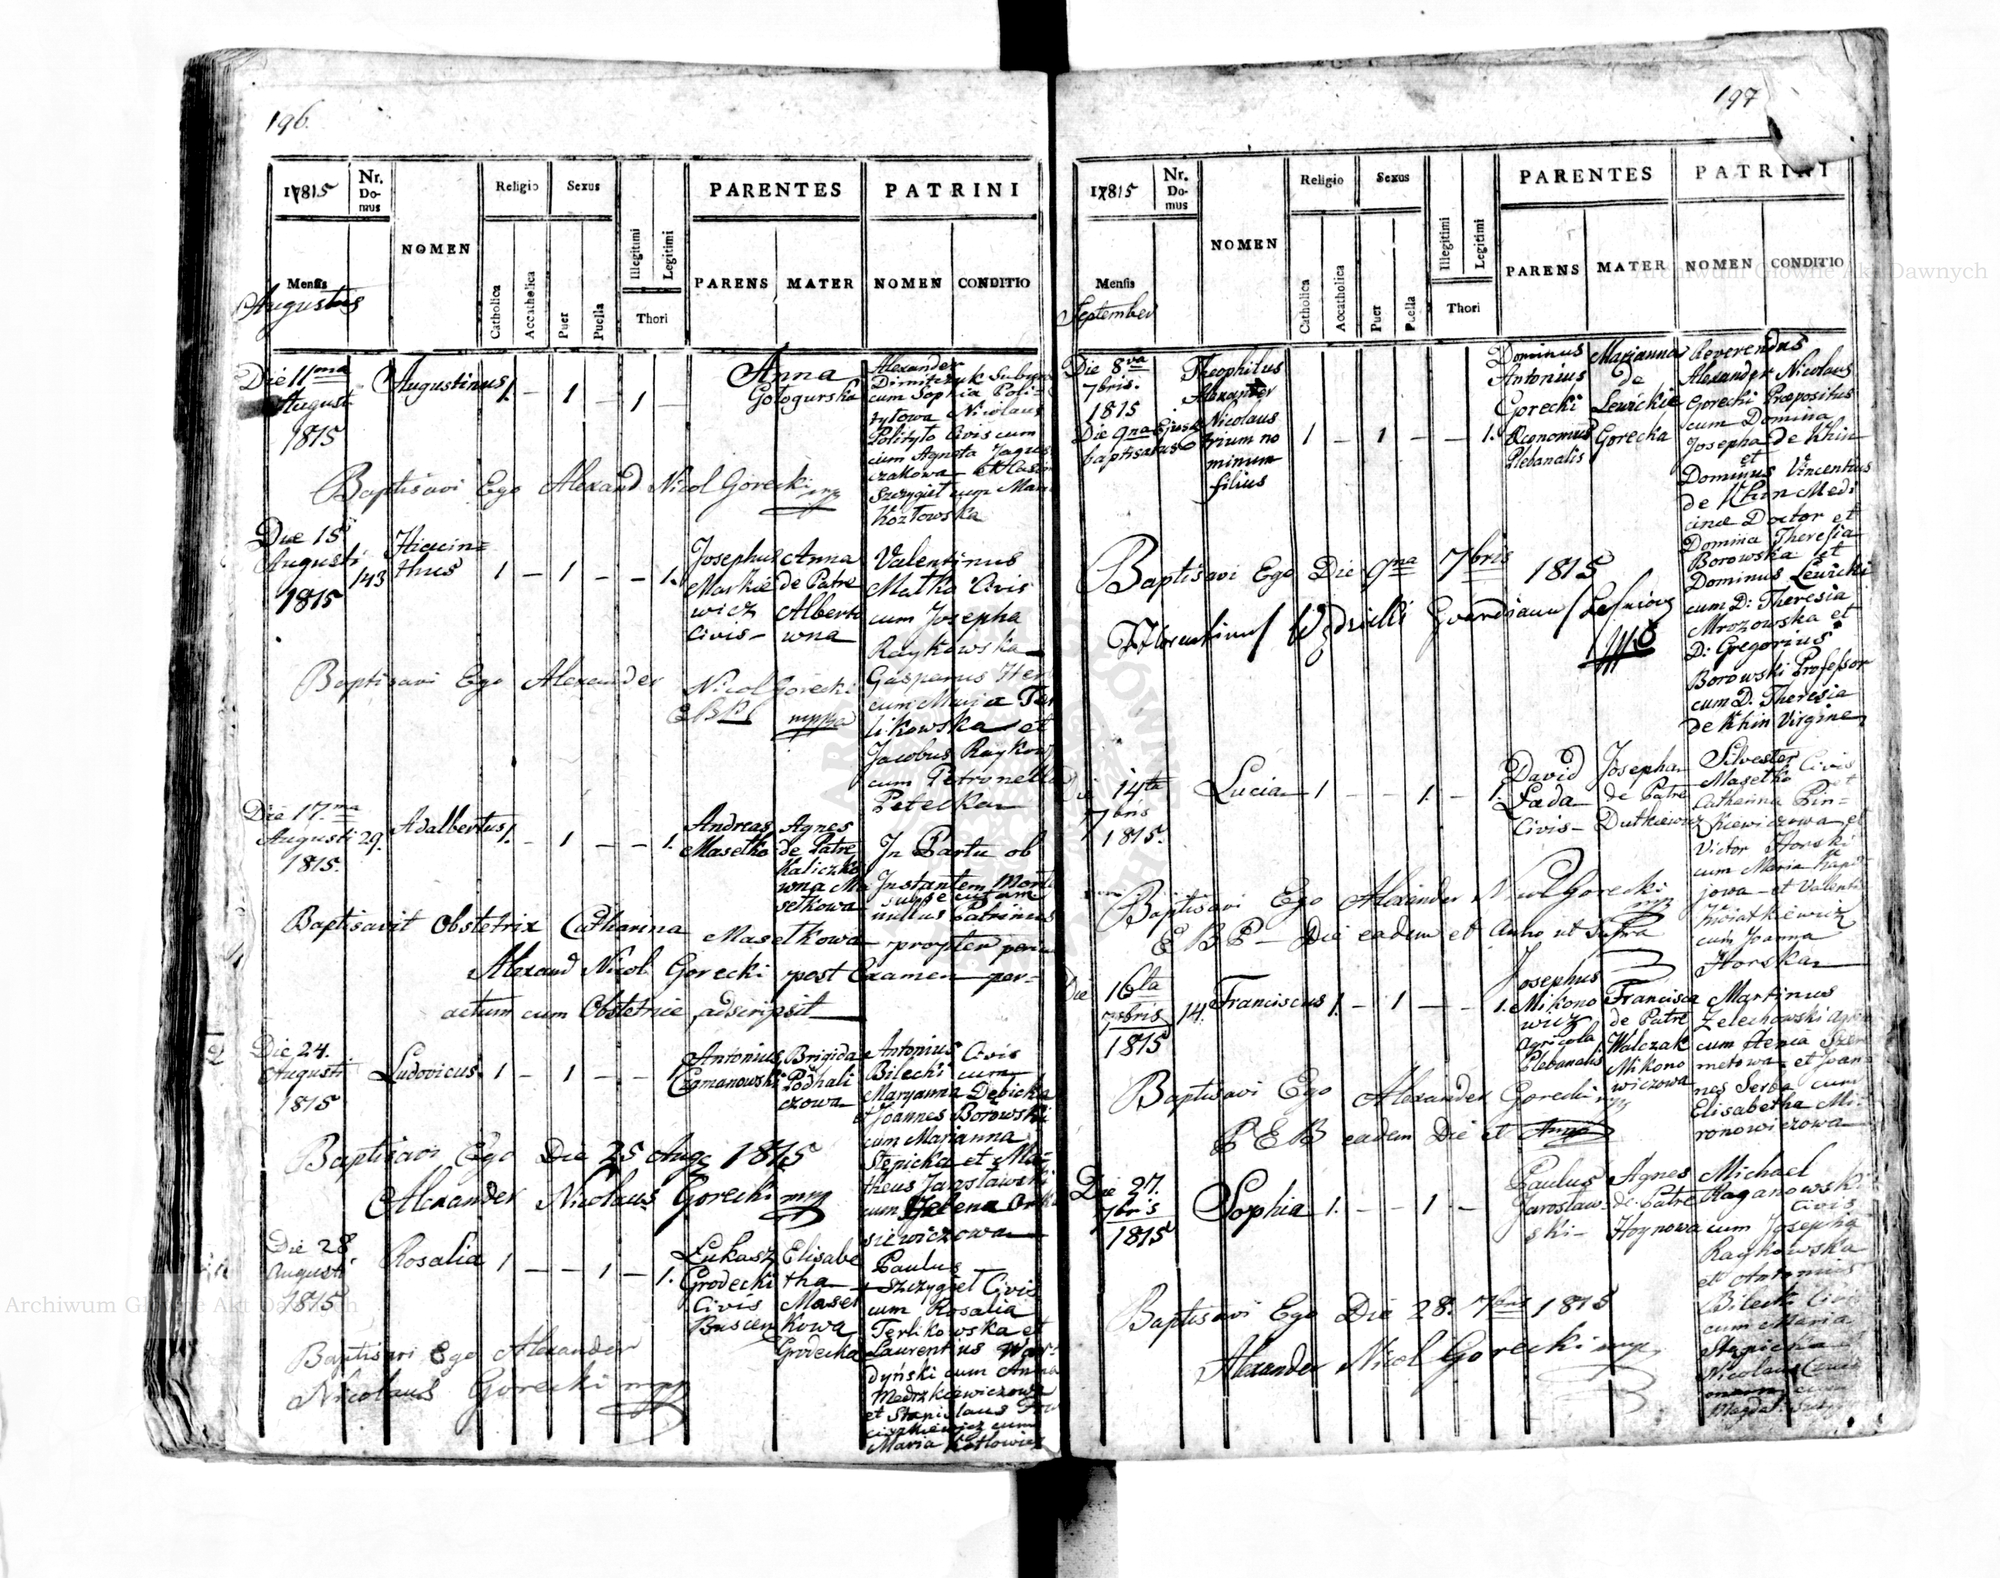 196.
17815
Nr. Domus
NOMEN
Religio
Sexus
Illegitimi
Legitimi
PARENTES
PATRINI
Mensis
Augustus
Catholica
Accatholica
Puer
Puella
Thori
PARENS
MATER
NOMEN
CONDITIO
Die 11ma
August
1815
Augustinus
1. – 1 – 1 –
Anna
Gologurska
Alexander
Dimitrzyk
cum Sophia Poli-
tytowa Nicolaus
Polityto Civis cum
cum Agneta
czakowa et
Szczygieł cum
Kozłowska
Baptisavi Ego Alexand Nicol Gorecki mpp
Die 15
Augusti
1815
143
Hiacin=
thus
1 – 1 – – 1.
Josephus
Markie
wicz
Civis –
Anna
de Patre
Alberto
wna
Valentinus
Matko Civis
cum Josepha
Raykowska
Gasparus
cum Maria
likowska et
Jacobus
cum Petronella
Petecka
Baptisavi Ego Alexander Nicol Gorecki
mppa
Die 17.ma
Augusti
1815.
29.
Adalbertus
1. – 1 – – 1.
Andreas
Masetko
Agnes
de Patre
Kaliczko
wna Ma
setkowa
In Partu ob
Instantem
nullus Patrinus
Baptisavit Obstetrix Catharina Masetkowa propter
Alexand Nicol Gorecki post Examen per-
actum cum Obstetrice adscripsit
Die 24.
Augusti
1815
Ludovicus
1 – 1 – –
Antonius
Brigida
Podhali
czowa
Antonius Civis
Bilecki cum
Maryanna Debicka
et Joannes Borowski
cum Marianna
Stepicka et Ma-
theus Jarosławski
cum Helena
siewiczowa
Baptisavi Ego Die 25 Aug 1815
Alexander Nicolaus Gorecki mpp
Die 28
Augusti
1815
Rosalia
1 – – 1 – 1.
Łukasz
Grodecki
Civis
Elisabe
tha
Maset
kowa
Grodecka
Paulus
Szczygieł Civis
cum Rosalia
Terlikowska et
Laurentius War-
dyński cum Anna
et Stanislaus
cum
Maria
Baptisavi Ego Alexander
Nicolaus Gorecki mpp
197
17815
Nr. Domus
NOMEN
Religio
Sexus
Illegitimi
Legitimi
PARENTES
PATRINI
Mensis
September
Catholica
Accatholica
Puer
Puella
Thori
PARENS
MATER
NOMEN
CONDITIO
Die 8.va
7bris.
1815
Die 9na
baptisatus
Theophilus
Alexander
Nicolaus
trium no
minum
filius
1 – 1 – – 1.
Dominus
Antonius
Gorecki
Œconomus
Plebanalis
Marjanna
de
Lewickie
Gorecka
Reverendus
Alexander Nicolaus
Gorecki Præpositus
cum Domina
Josepha de Khin
et
Dominus Vincentius
de Khin Medi
cinæ Doctor et
Domina Theresia
Borowska et
Dominus Lewicki
cum D: Theresia
Mrozowska et
D: Gregorius
Borowski Professor
cum D. Theresia
de Khin Virgine
Baptisavi Ego Die 9na 7bris 1815
Die 14ta
7bris
1815.
Lucia
1 – – 1. – 1.
David
Łada
Civis –
Josepha
de Patre
Dutkiewicz
Silvester
Masetko Civis
et
Catharina Pin=
kiewiczowa et
Victor Horski
cum Maria
jowa et
cum Joanna
Horska
Baptisavi Ego Alexander Nicol Gorecki
E B P – Die eadem et Anno ut Supra
Die 16ta
7bris
1815
14.
Franciscus
1. – 1 – – 1.
Josephus
Mikono
wicz
Agricola
Plebanalis
Francisca
de Patre
Walczak
Mikono
wiczowa
Martinus
Zelechowski
cum
metowa et Joan
nes Serba cum
Elisabetha Mi-
ronowiczowa
Baptisavi Ego Alexander Gorecki mpp
P E B eadem Die et Anno
Die 27.
7bris
1815
Sophia
1. – – 1 –
Paulus
Jarosław-
ski –
Agnes
de Patre
Hoynowa
Michael
Raganowski
Civis
cum Josepha
Raykowska
et Antonius
Bilecki Civis
cum Maria
Stapicka
Nicolaus
Baptisavi Ego Die 28. 7bris 1815
Alexander Nicol Gorecki mpp
Archiwum Główne Akt Dawnych
Archiwum Główne Akt Dawnych